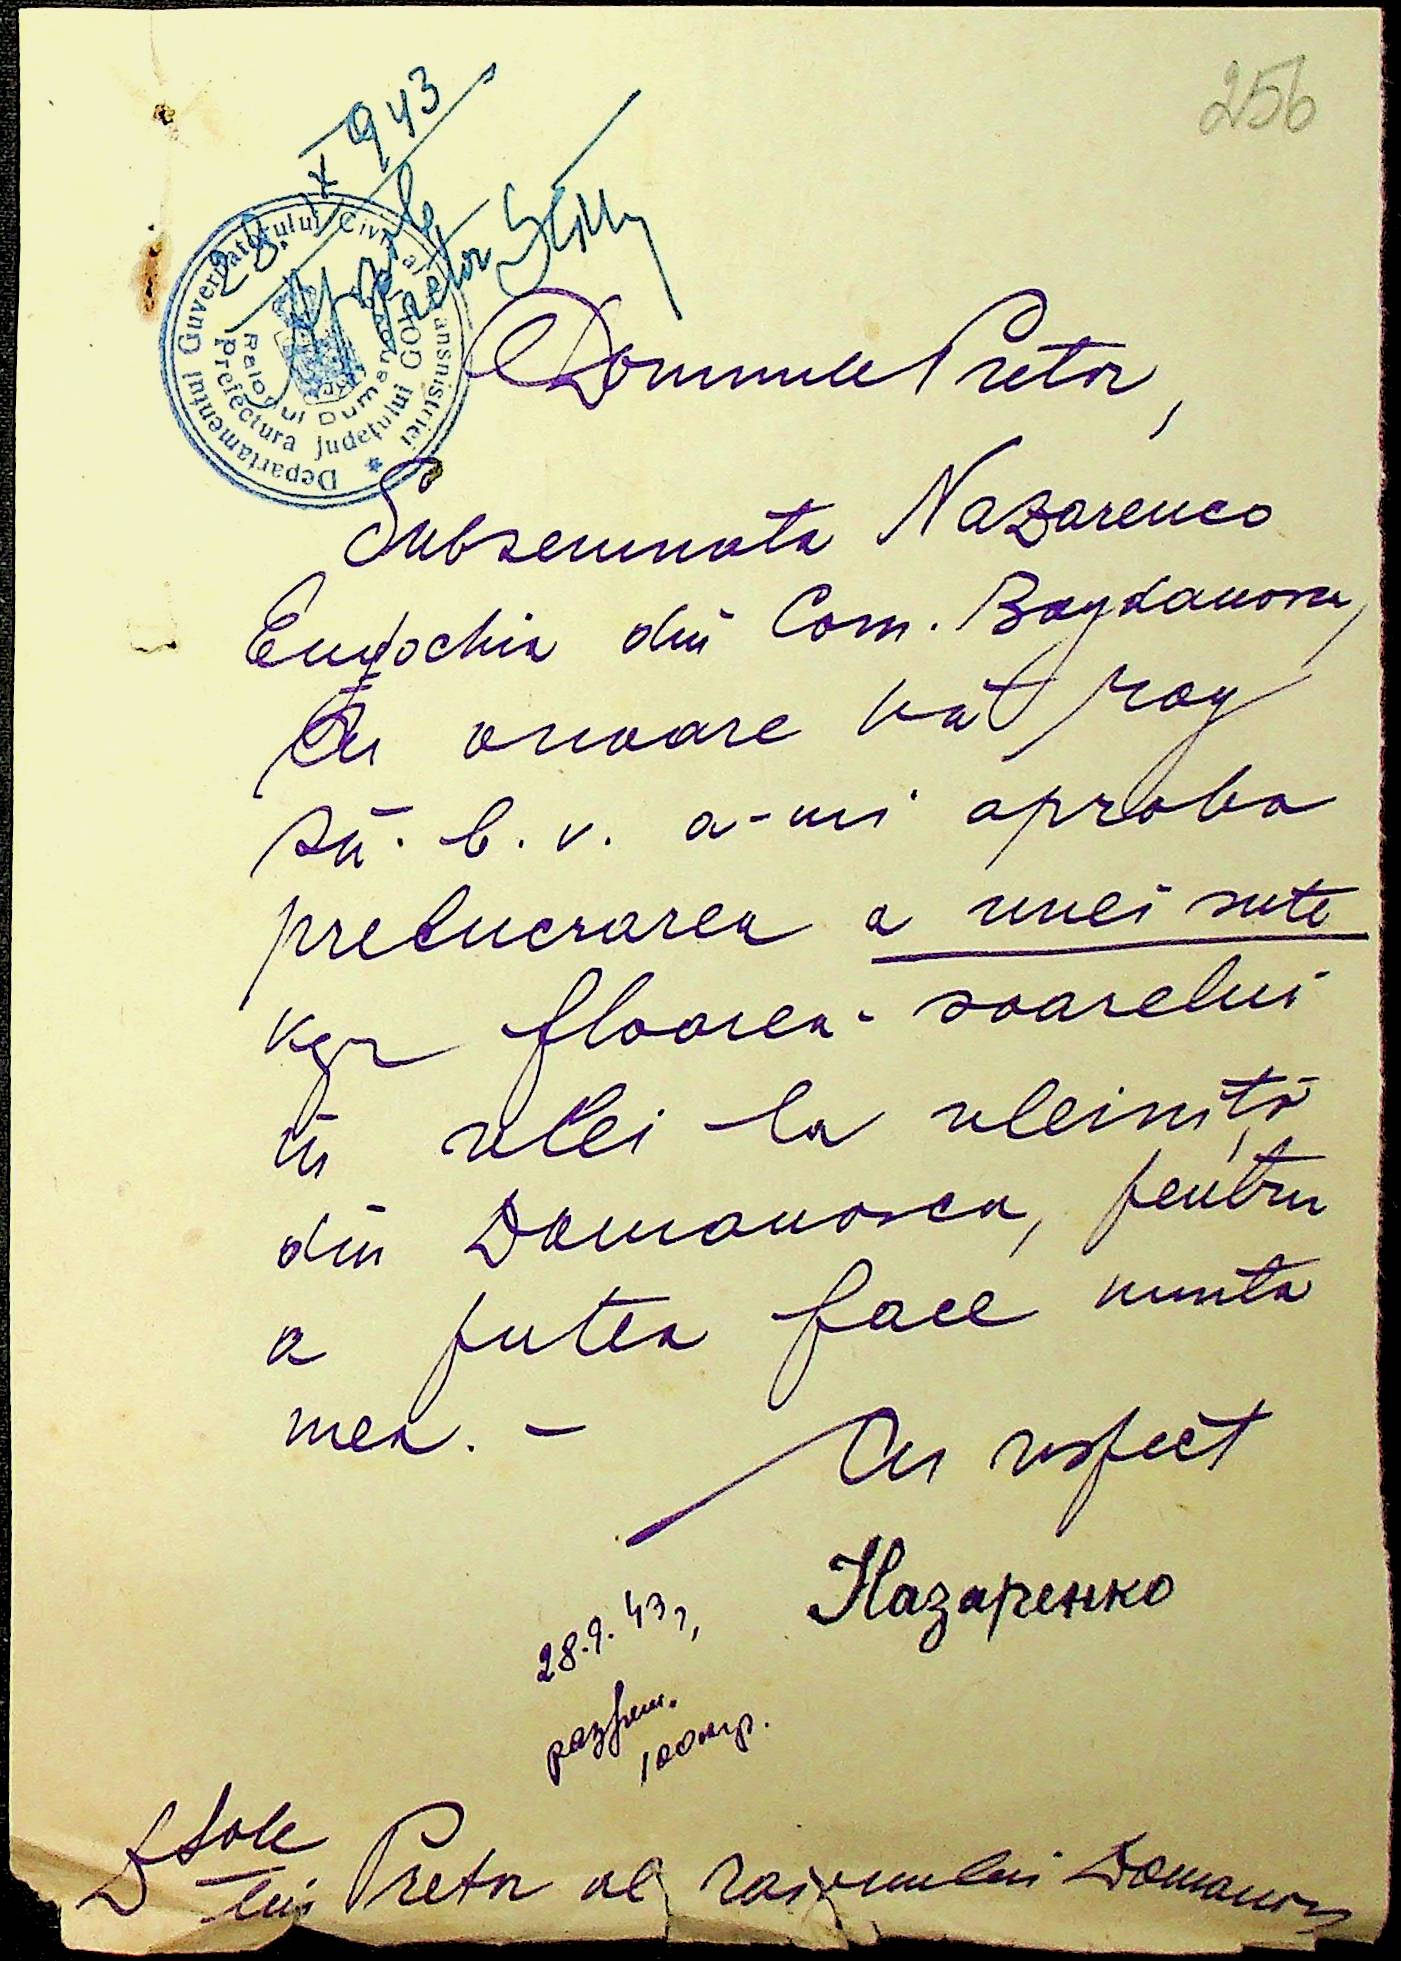 256
28. IX 943
Departamentul Guvernatorului Civil al Transnistriei
Prefectura judeţului GOLTA
Raionul Dumanovca
Domnule Pretor,
Subsemnata Nazarenco
Eudochia din Com. Bogdanovca,
Cu onoare vă rog
să b. v. a-mi aproba
prelucrarea a unei sute
kgr floarea-soarelui
în ulei la uleiniţă
din Domanovca, pentru
a putea face nunta
mea. –
Cu respect
Назаренко
28.9.43,
разреш.
100 кгр.
D Sale
lui Pretor al raionului Domanov